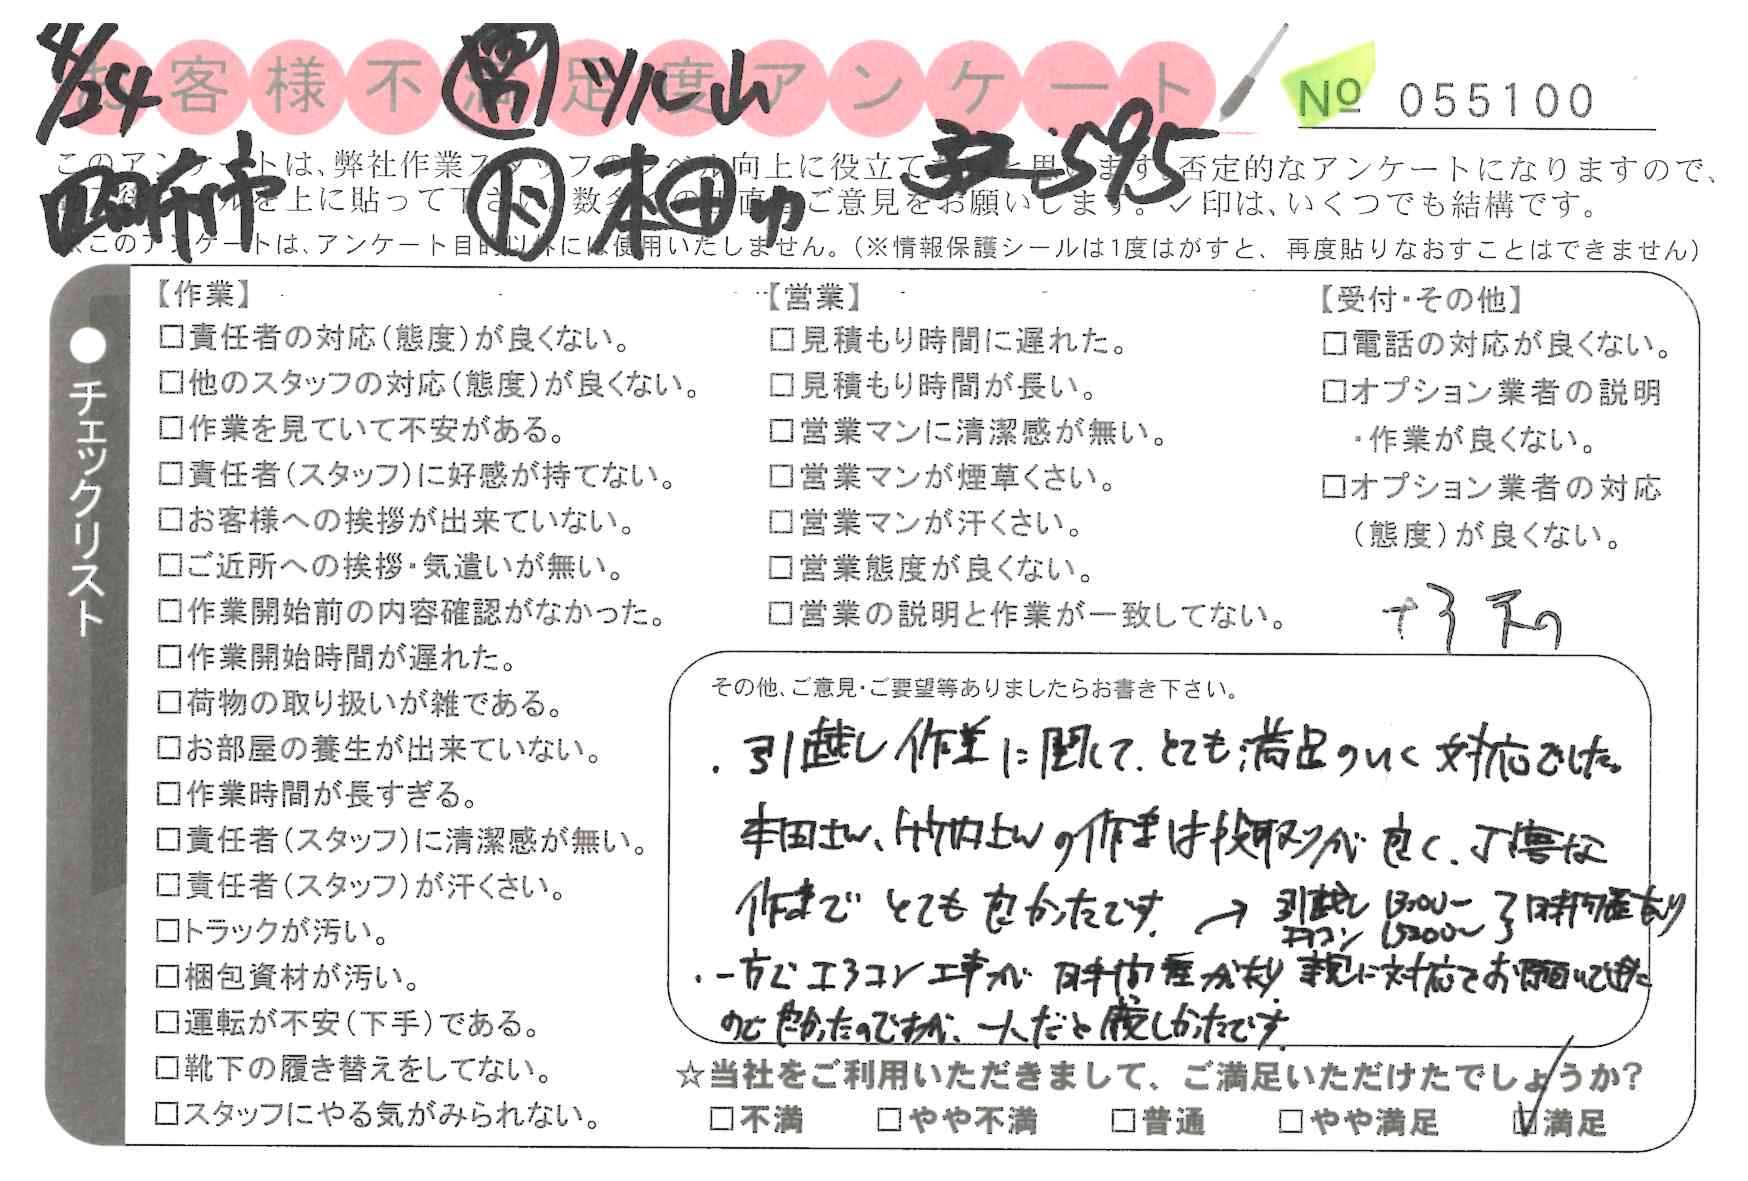 4/24 営 ツル山
お客様不満足度アンケート
№ 055100
595
このアンケートは、弊社作業スタッフの 向上に役立て 思います。否定的なアンケートになりますので、
ド 本田
を上に貼って下さい。数多くの ご意見をお願いします。✓印は、いくつでも結構です。
※このアンケートは、アンケート目的以外には使用いたしません。(※情報保護シールは1度はがすと、再度貼りなおすことはできません)
●チェックリスト
【作業】
□責任者の対応(態度)が良くない。
□他のスタッフの対応(態度)が良くない。
□作業を見ていて不安がある。
□責任者(スタッフ)に好感が持てない。
□お客様への挨拶が出来ていない。
□ご近所への挨拶・気遣いが無い。
□作業開始前の内容確認がなかった。
□作業開始時間が遅れた。
□荷物の取り扱いが雑である。
□お部屋の養生が出来ていない。
□作業時間が長すぎる。
□責任者(スタッフ)に清潔感が無い。
□責任者(スタッフ)が汗くさい。
□トラックが汚い。
□梱包資材が汚い。
□運転が不安(下手)である。
□靴下の履き替えをしてない。
□スタッフにやる気がみられない。
【営業】
□見積もり時間に遅れた。
□見積もり時間が長い。
□営業マンに清潔感が無い。
□営業マンが煙草くさい。
□営業マンが汗くさい。
□営業態度が良くない。
□営業の説明と作業が一致してない。
【受付・その他】
□電話の対応が良くない。
□オプション業者の説明
・作業が良くない。
□オプション業者の対応
(態度)が良くない。
その他、ご意見・ご要望等ありましたらお書き下さい。
・引越し作業に関して、とても満足のいく対応でした。
本田さん、竹内さんの作業は段取りが良く、丁寧な
作業でとても良かったです。→ 引越し 13:00〜
エアコン 15:00〜 時間差あり
・一方でエアコン工事が時間差があり 親に対応をお願いできた
ので良かったのですが、一人だと厳しかったです。
☆当社をご利用いただきまして、ご満足いただけたでしょうか?
□不満 □やや不満 □普通 □やや満足 ☑満足